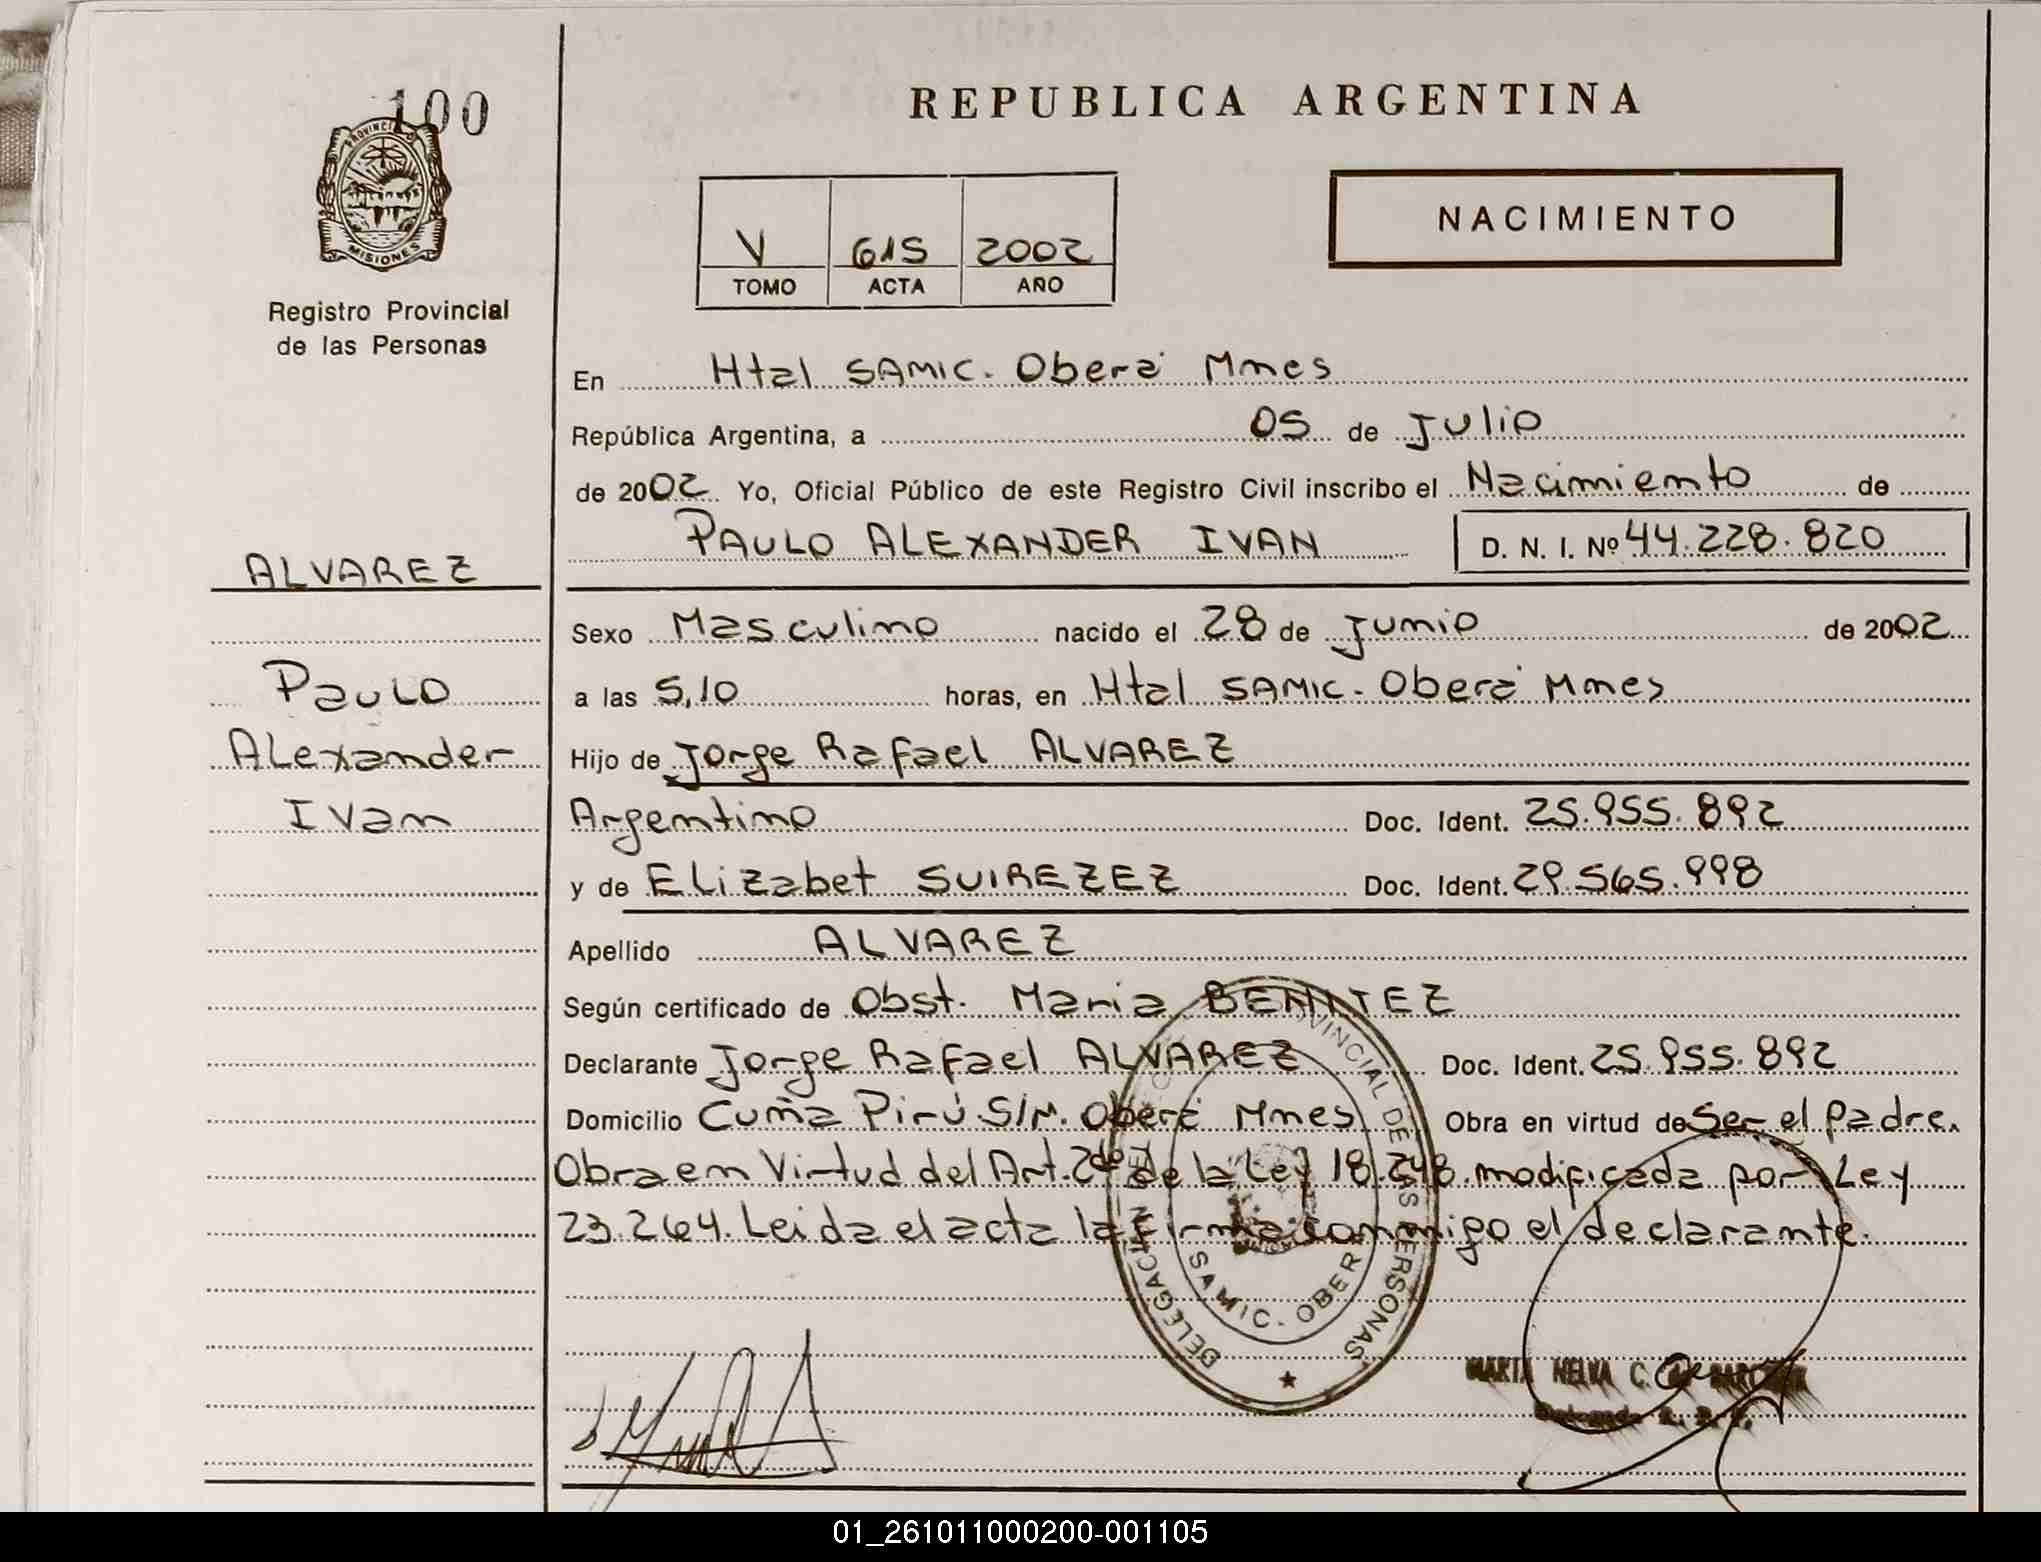 100
PROVINCIA DE
MISIONES
Registro Provincial
de las Personas
REPUBLICA ARGENTINA
V 615 2002
TOMO ACTA AÑO
NACIMIENTO
En Htal SAMIC. Oberá Mnes
República Argentina, a 05 de Julio
de 2002 Yo, Oficial Público de este Registro Civil inscribo el Nacimiento de
PAULO ALEXANDER IVAN D. N. I. Nº 44.228.820
ALVAREZ
Paulo
Alexander
Ivan
Sexo Masculino nacido el 28 de Junio de 2002
a las 5,10 horas, en Htal SAMIC. Oberá Mnes
Hijo de Jorge Rafael ALVAREZ
Argentino Doc. Ident. 25.955.892
y de Elizabet SUIREZEZ Doc. Ident. 29.565.998
Apellido ALVAREZ
Según certificado de Obst. Maria BENITEZ
Declarante Jorge Rafael ALVAREZ Doc. Ident. 25.955.892
Domicilio Cuña Pirú S/N. Oberá Mnes Obra en virtud de Ser el padre.
Obra en Virtud del Art. 2do de la Ley 18.248. modificada por Ley
23.264. Leida el acta la firma conmigo el declarante.
DELEGACION PROVINCIAL DE LAS PERSONAS
SAMIC. OBERA
MARTA NELVA C.
Delegada R. P. P.
01_261011000200-001105